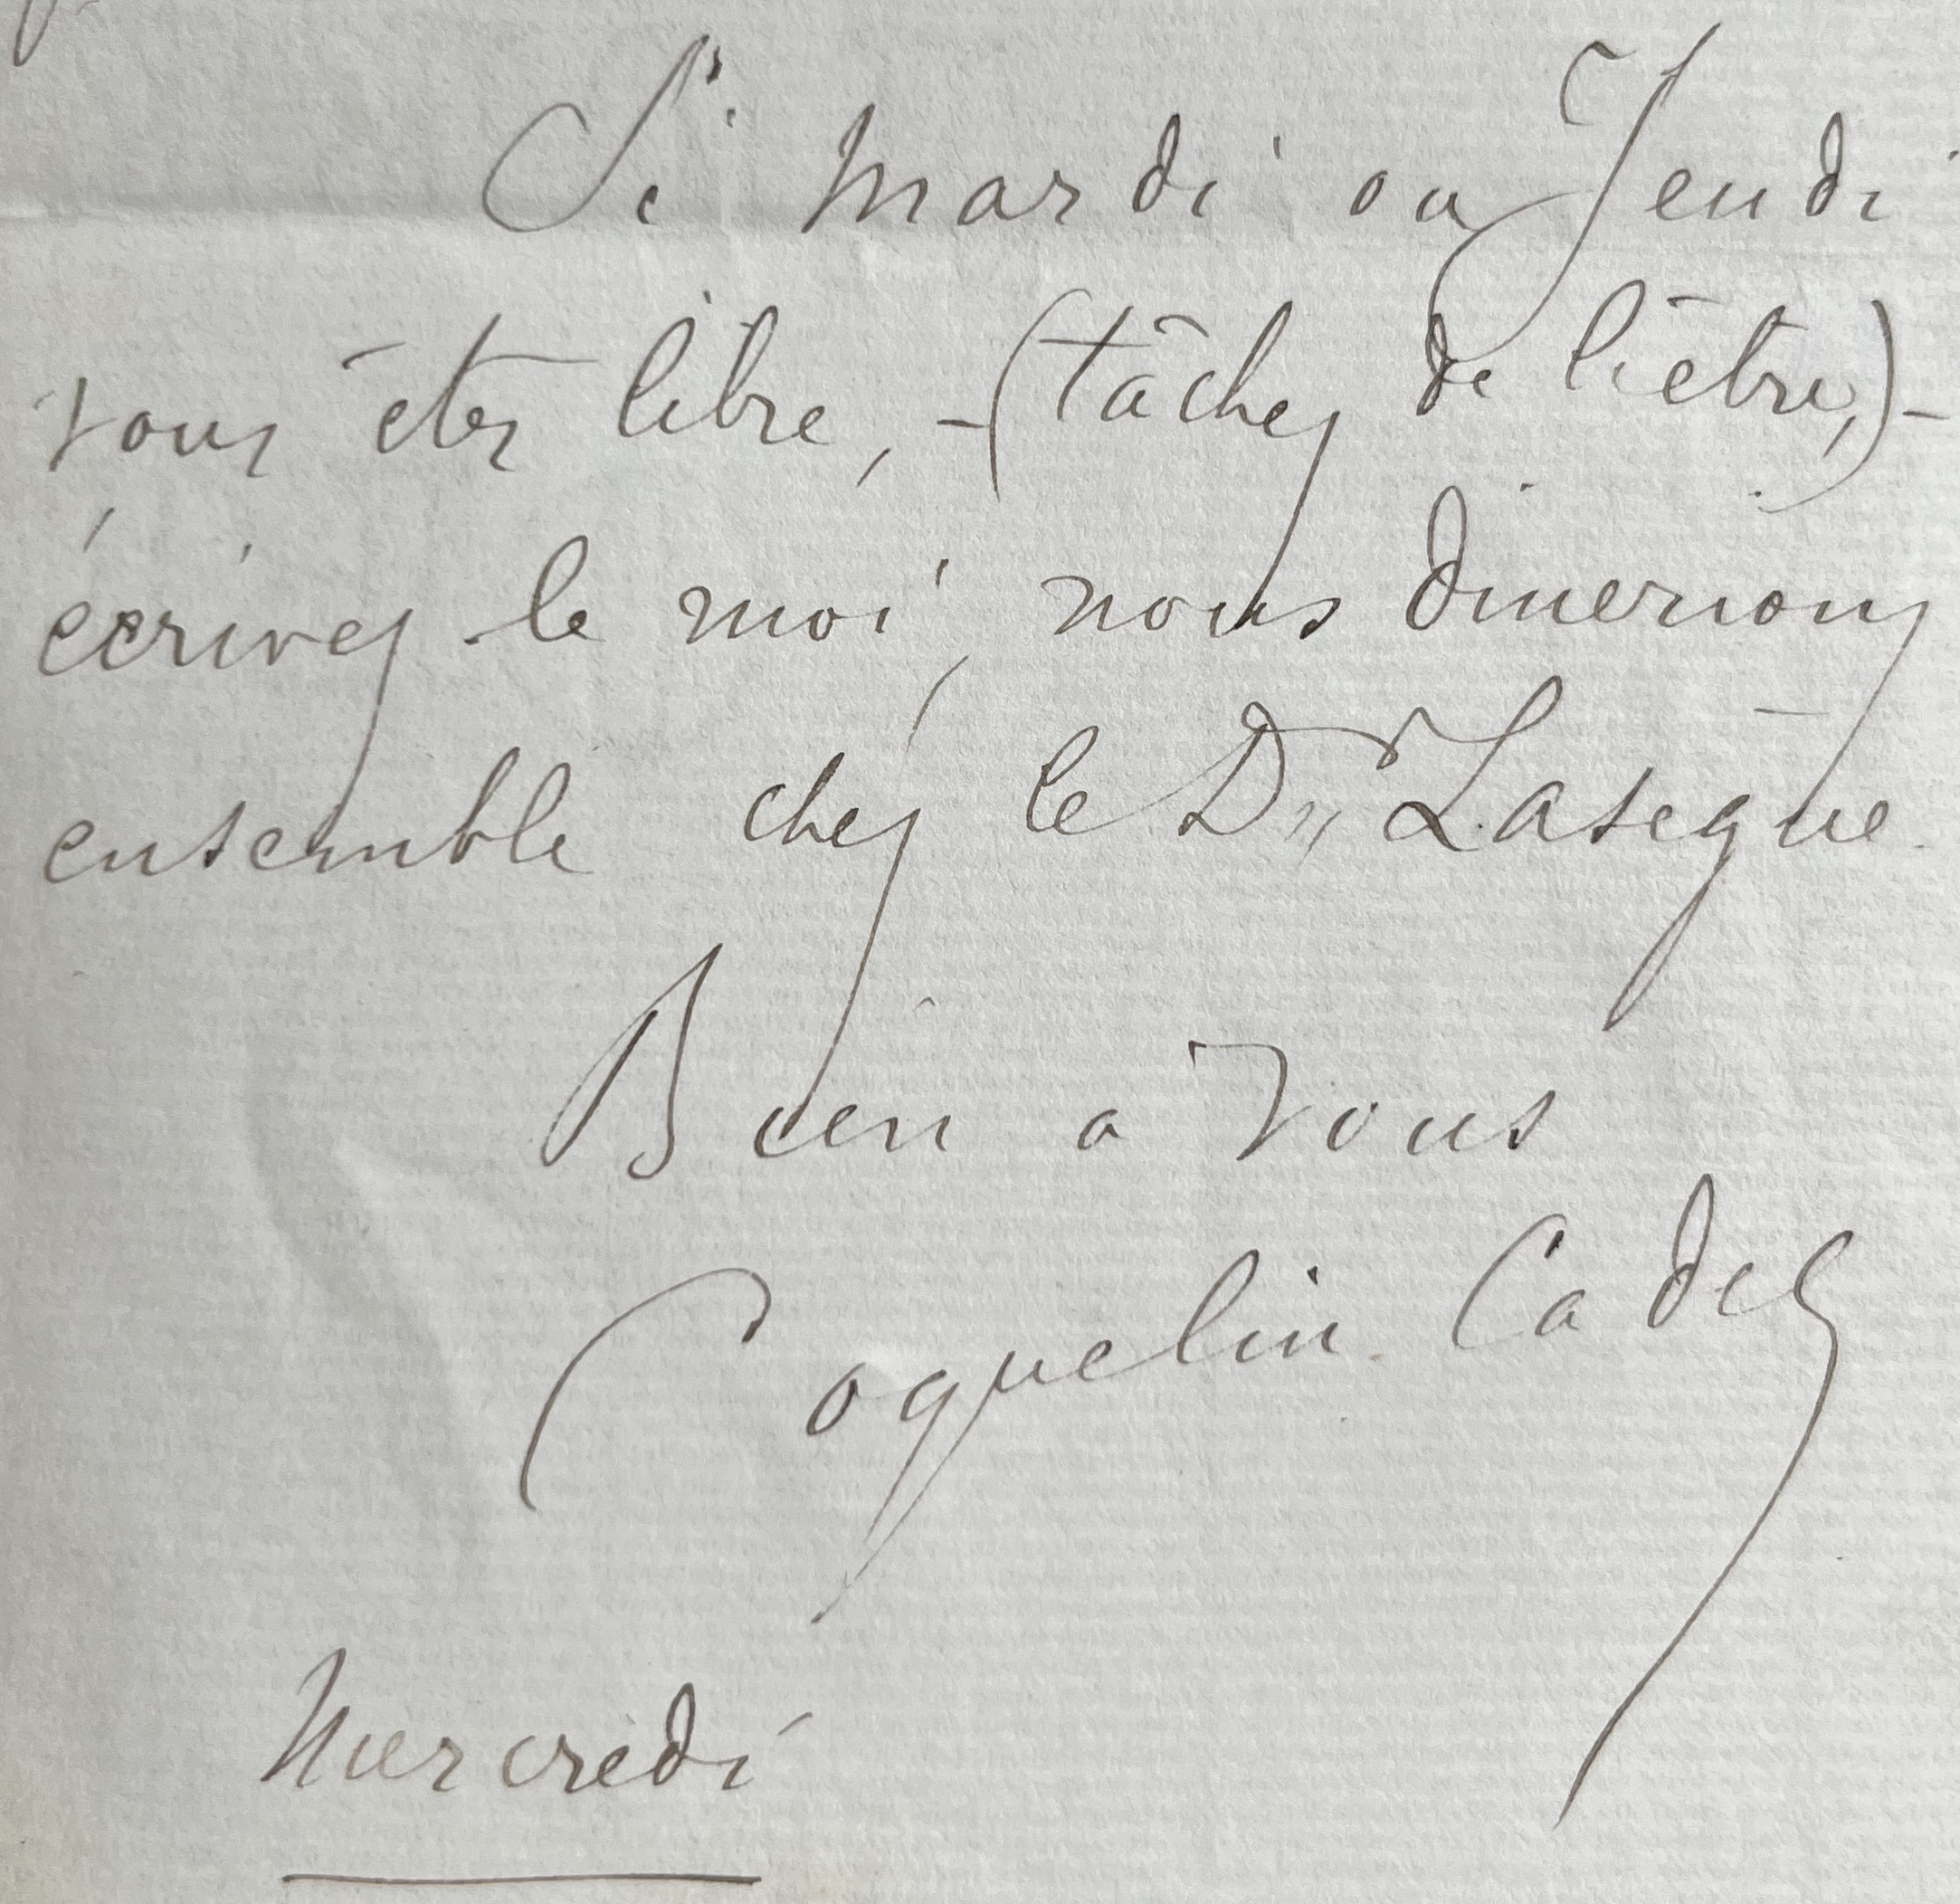 Si mardi ou Jeudi
vous êtes libre, - (tâchez de l'être,) -
écrivez-le moi, nous dinerions
ensemble chez le Dr Lasègue.
Bien à vous
Coquelin Cadet
Mercredi